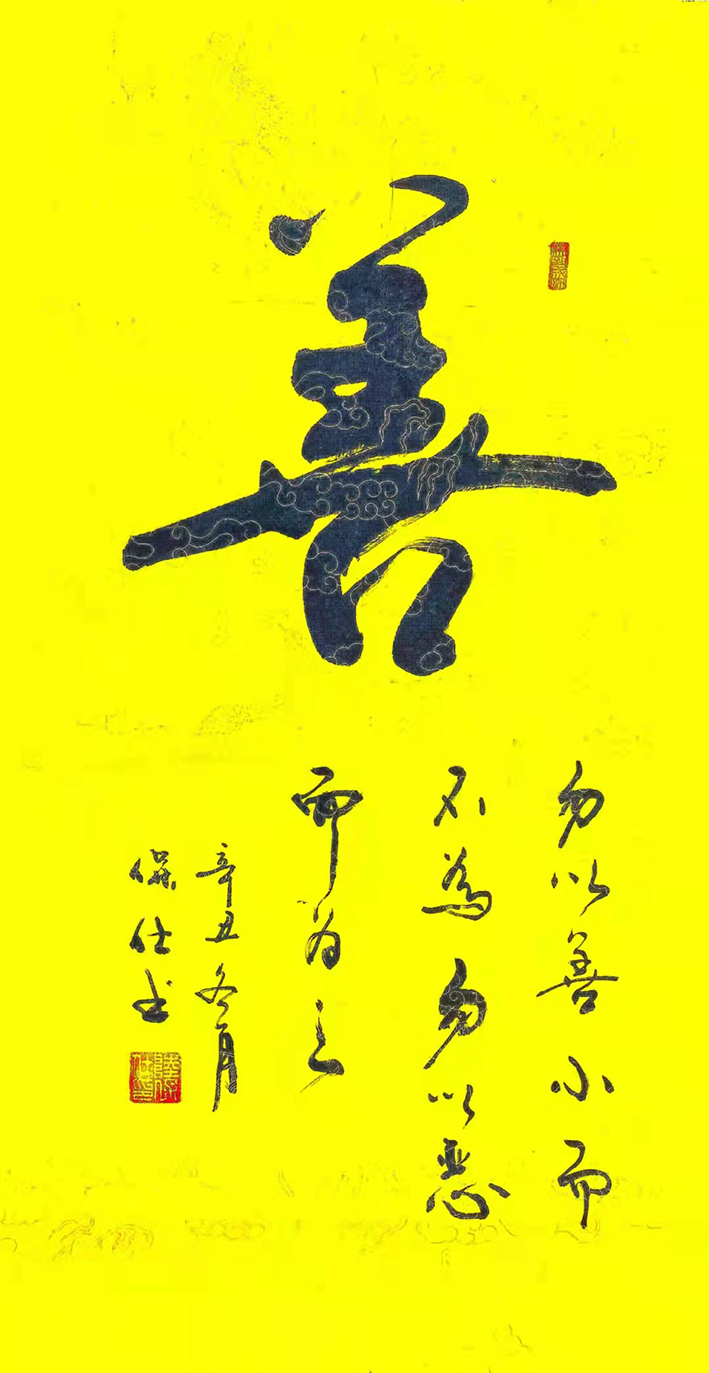 善
勿以善小而
不為勿以惡
而为之
辛丑冬月
保仕书